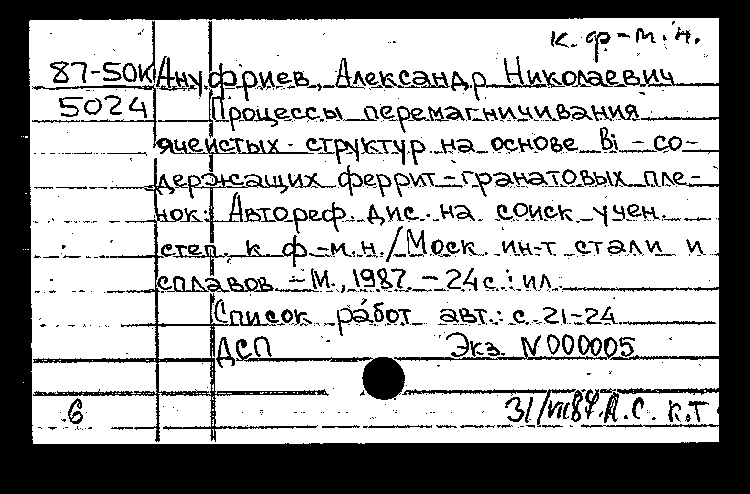 к. ф-м. н.
87-50К Ануфриев, Александр Николаевич
5024 Процессы перемагничивания
ячеистых структур на основе Bi-со-
держащих феррит-гранатовых пле-
нок: Автореф. дис. на соиск учен.
степ. к. ф.-м.н./Моск ин-т стали и
сплавов - М., 1987. - 24 с.: ил.
Список работ авт.: с. 21-24
ДСП Экз. N 000005
6 А.С. к.т